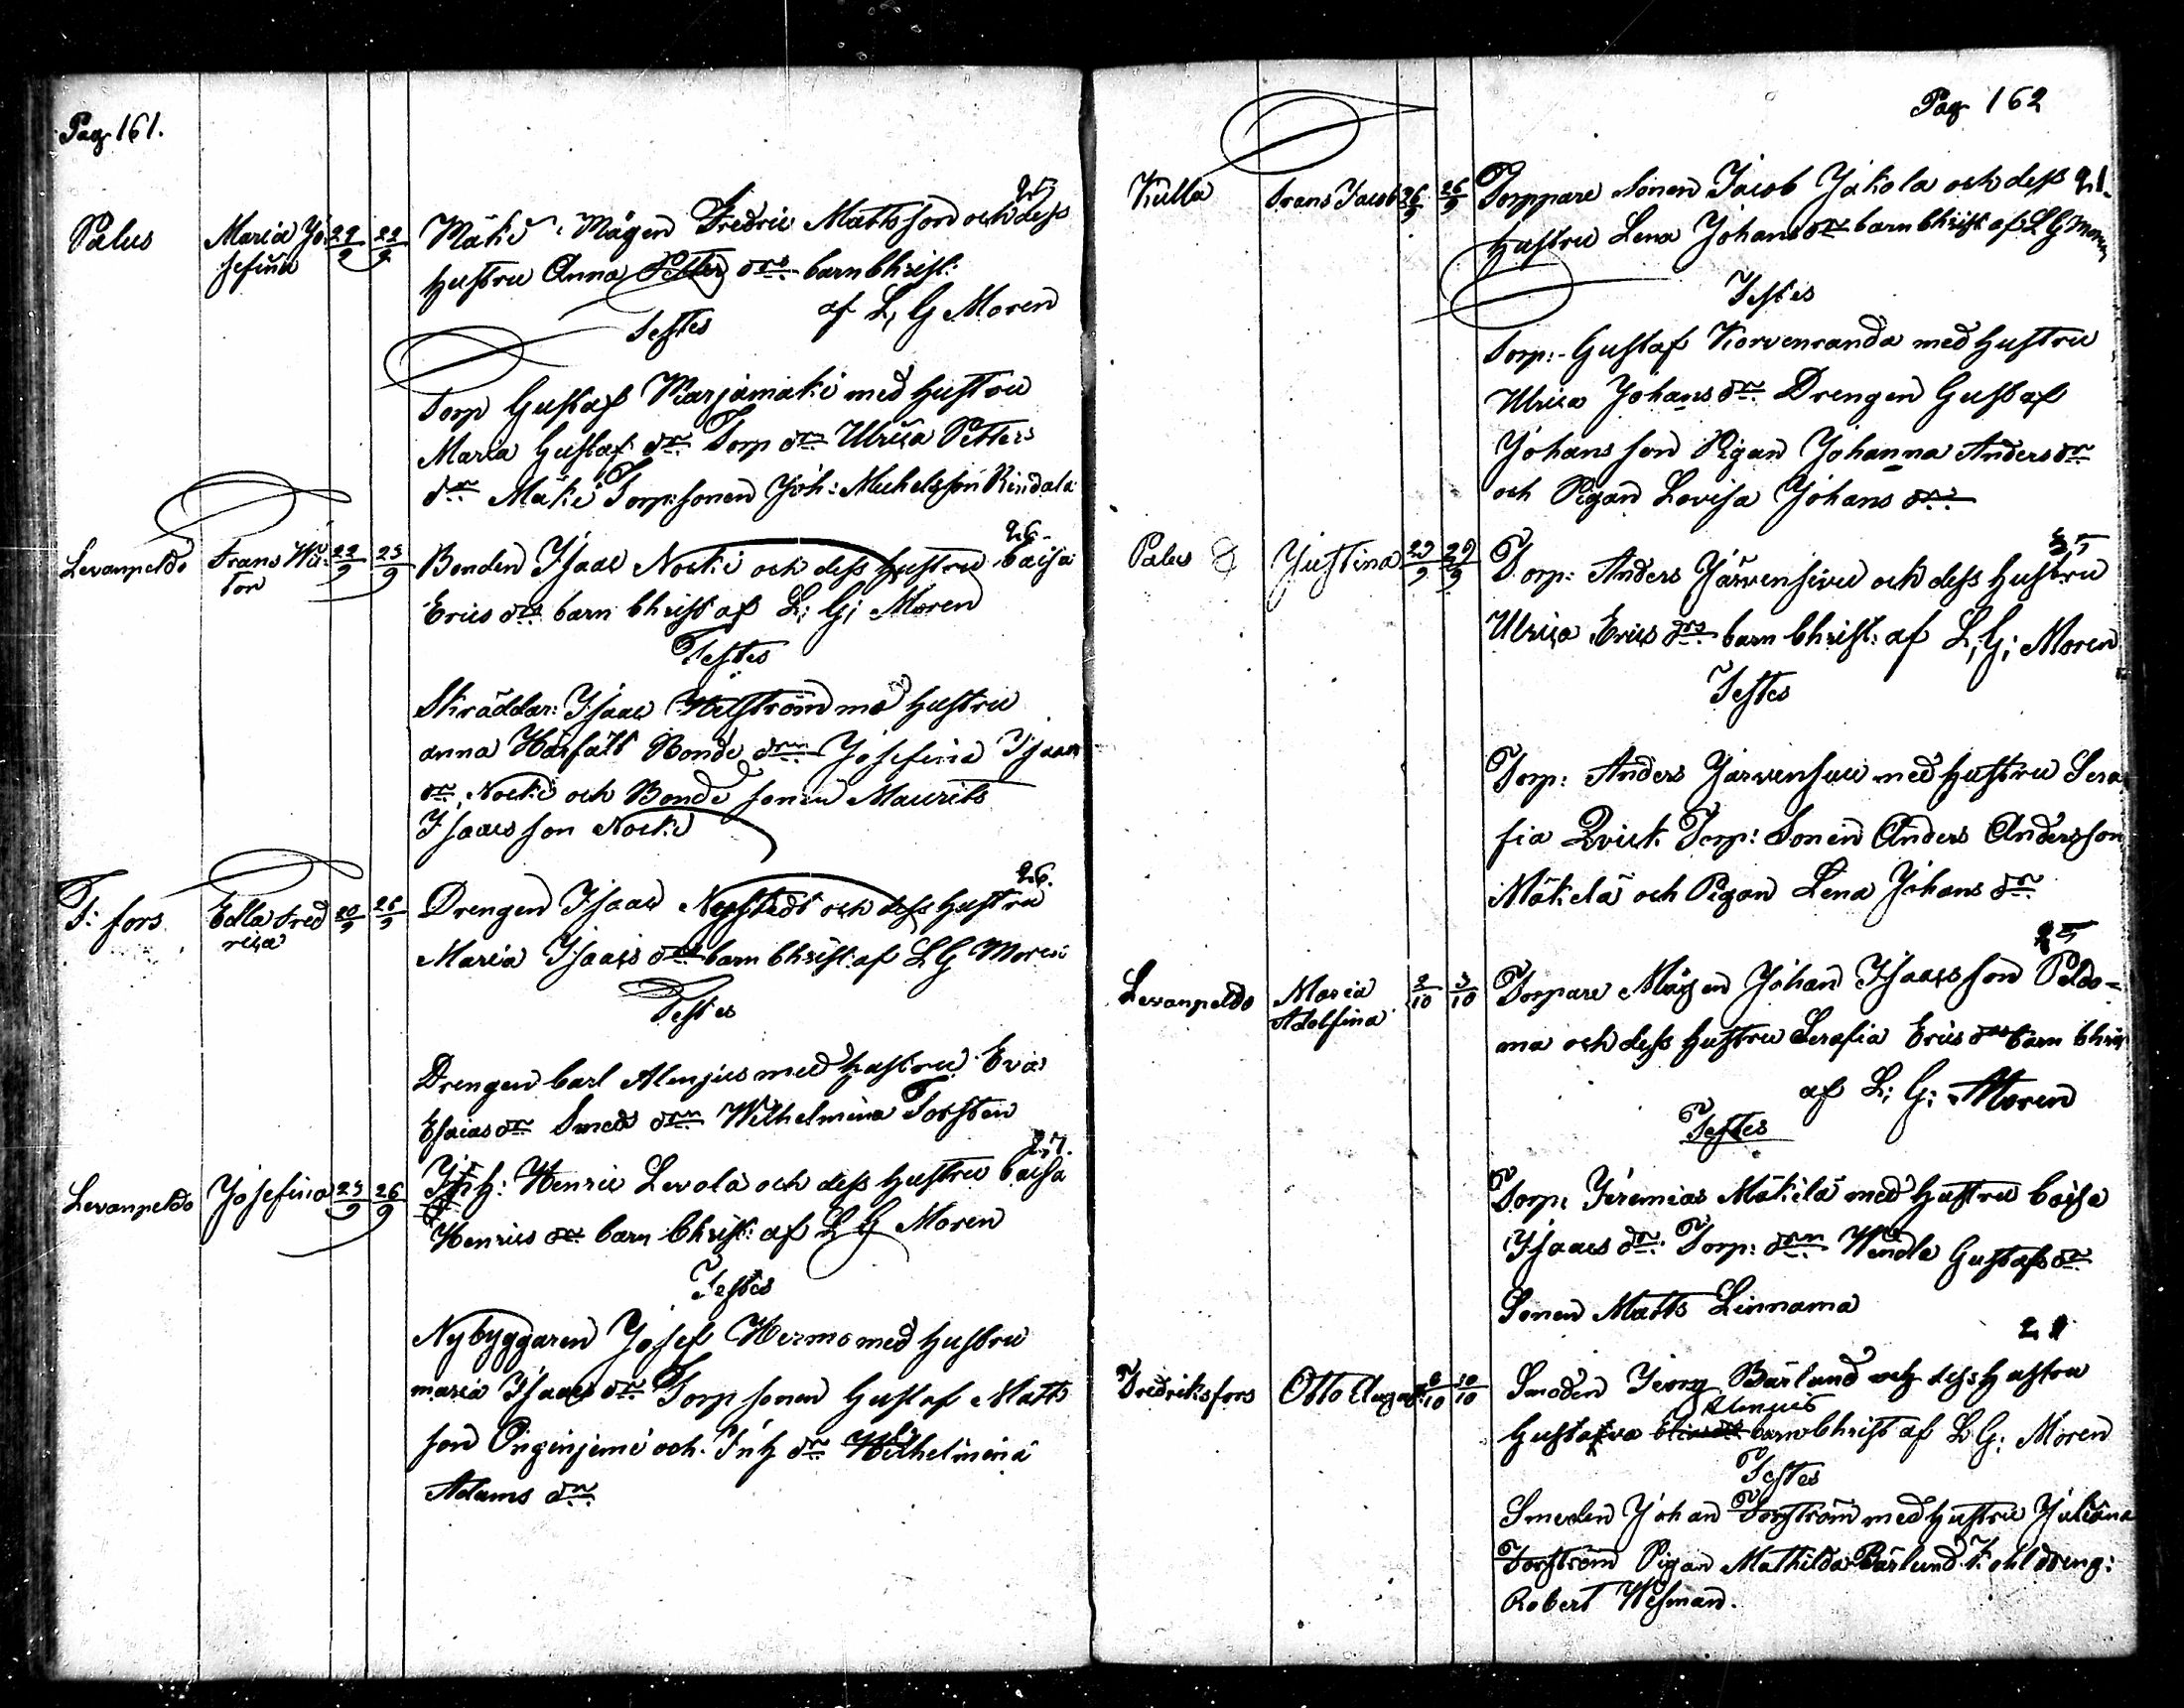 Pag. 161.
25
Palus Maria Jo- 22/9 22/9 Mäki Mågen Fredric Mattsson och dess
sefina hustru Anna Petter drs barn Christ:
af L, G Moren
Testes
Torp Gustaf Marjamäki med hustru
Maria Gustaf dr Torp dr Ulrica Petters
dr Mäki Torp: sonen Joh: Michelsson Rindala
26
Levanpeldo Frans Wic- 22/9 23/9 Bonden Isaac Nocki och dess hustru Caisa
tor Erics drs barn Christ af L; G; Moren
Testes
Skräddar: Isaac Hellström med hustru
anna Härfält Bonde drn Josefina Isaacs
dr Nocki och Bonde sonen Maurits
Isaacsson Nocki
26.
F: fors Edla Fred 20/9 26/9 Drengen Isaac Nystedt och dess hustru
rica Maria Isaacs drs barn Christ. af L G Moren
Testes
Drengen Carl Alenjus med hustru Eva
Esaias dr Smeds drn Wilhelmina Torsten
27.
Levanpeldo Josefina 23/9 26/9 Inh: Henric Levola och dess hustru Caisa
Henrics drs barn Christ: af L G Moren
Testes
Nybyggaren Josef Hermo med hustru
maria Isaacs dr Torp sonen Gustaf Matts
son Pinginjemi och Inh dr Wilhelmina
Adams dr
Pag 162
Kulla Frans Jacob 26/9 26/9 Torppare Sonen Jacob Jakola och dess 21.
hustru Lena Johans drs barn Christ af L G Moren
Testes
Torp: Gustaf Korvenranda med hustru
Ulrica Johans dr Drengen Gustaf
Johansson Pigan Johanna Anders dr
och Pigan Lovisa Johans dr
35
Palus Justina 29/9 29/9 Torp: Anders Järvensivu och dess hustru
Ulrica Erics drs barn Christ: af L; G; Moren
Testes
Torp: Anders Jarvensivu med hustru Sera
fia Qvick Torp: Sonen Anders Andersson
Mäkelä och Pigan Lena Johans dr
25
Levanpeldo Maria 2/10 3/10 Torpare Mågen Johan Isaacsson Peldo-
Adolfina ma och dess hustru Serafia Erics drs barn Chris
af L; G; Moren
Testes
Torp: Jeremias Mäkilä med hustru Caisa
Isaacs dr Torp: drn Wendla Gustafs dr
Sonen Matts Linnama
21
Fredriksfors Otto August 8/10 10/10 Smeden Georg Bärlund och dess hustru
Alenjus
Gustafva barn Christ af L G; Moren
Testes
Smeden Johan Torström med hustru Juliana
Torström Pigan Mathilda Bärlund Kohldreng:
Robert Wesman.